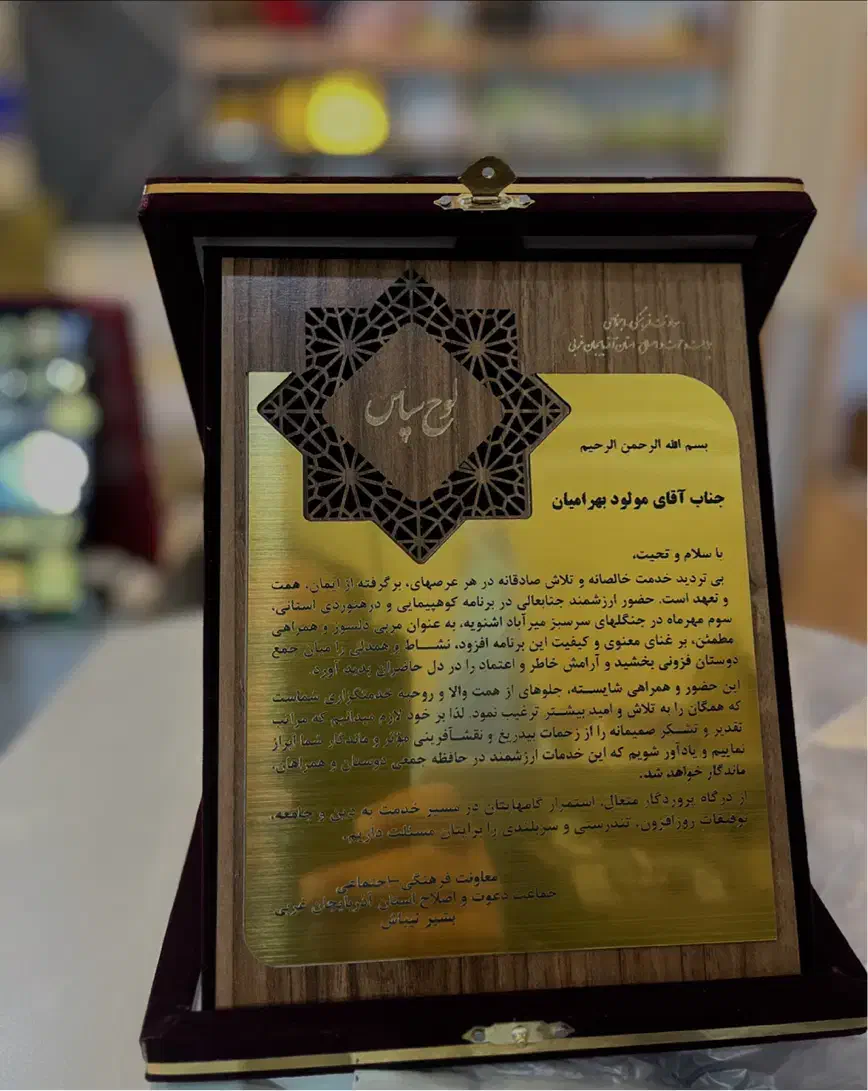 معاونت فرهنگی، اجتماعی
جماعت دعوت و اصلاح استان آذربایجان غربی
لوح سپاس
بسم الله الرحمن الرحیم
جناب آقای مولود بهرامیان
با سلام و تحیت،
بی تردید خدمت خالصانه و تلاش صادقانه در هر عرصهای، برگرفته از ایمان، همت
و تعهد است. حضور ارزشمند جنابعالی در برنامه کوهپیمایی و درهنوردی استانی،
سوم مهرماه در جنگلهای سرسبز میرآباد اشنویه، به عنوان مربی دلسوز و همراهی
مطمئن، بر غنای معنوی و کیفیت این برنامه افزود، نشاط و همدلی را میان جمع
دوستان فزونی بخشید و آرامش خاطر و اعتماد را در دل حاضران پدید آورد.
این حضور و همراهی شایسته، جلوهای از همت والا و روحیه خدمتگزاری شماست
که همگان را به تلاش و امید بیشتر ترغیب نمود. لذا بر خود لازم میدانیم که مراتب
تقدیر و تشکر صمیمانه را از زحمات بیدریغ و نقشآفرینی مؤثر و ماندگار شما ابراز
نماییم و یادآور شویم که این خدمات ارزشمند در حافظه جمعی دوستان و همراهان،
ماندگار خواهد شد.
از درگاه پروردگار متعال، استمرار گامهایتان در مسیر خدمت به دین و جامعه،
توفیقات روزافزون، تندرستی و سربلندی را برایتان مسئلت داریم.
معاونت فرهنگی-اجتماعی
جماعت دعوت و اصلاح استان آذربایجان غربی
بشیر نیباش